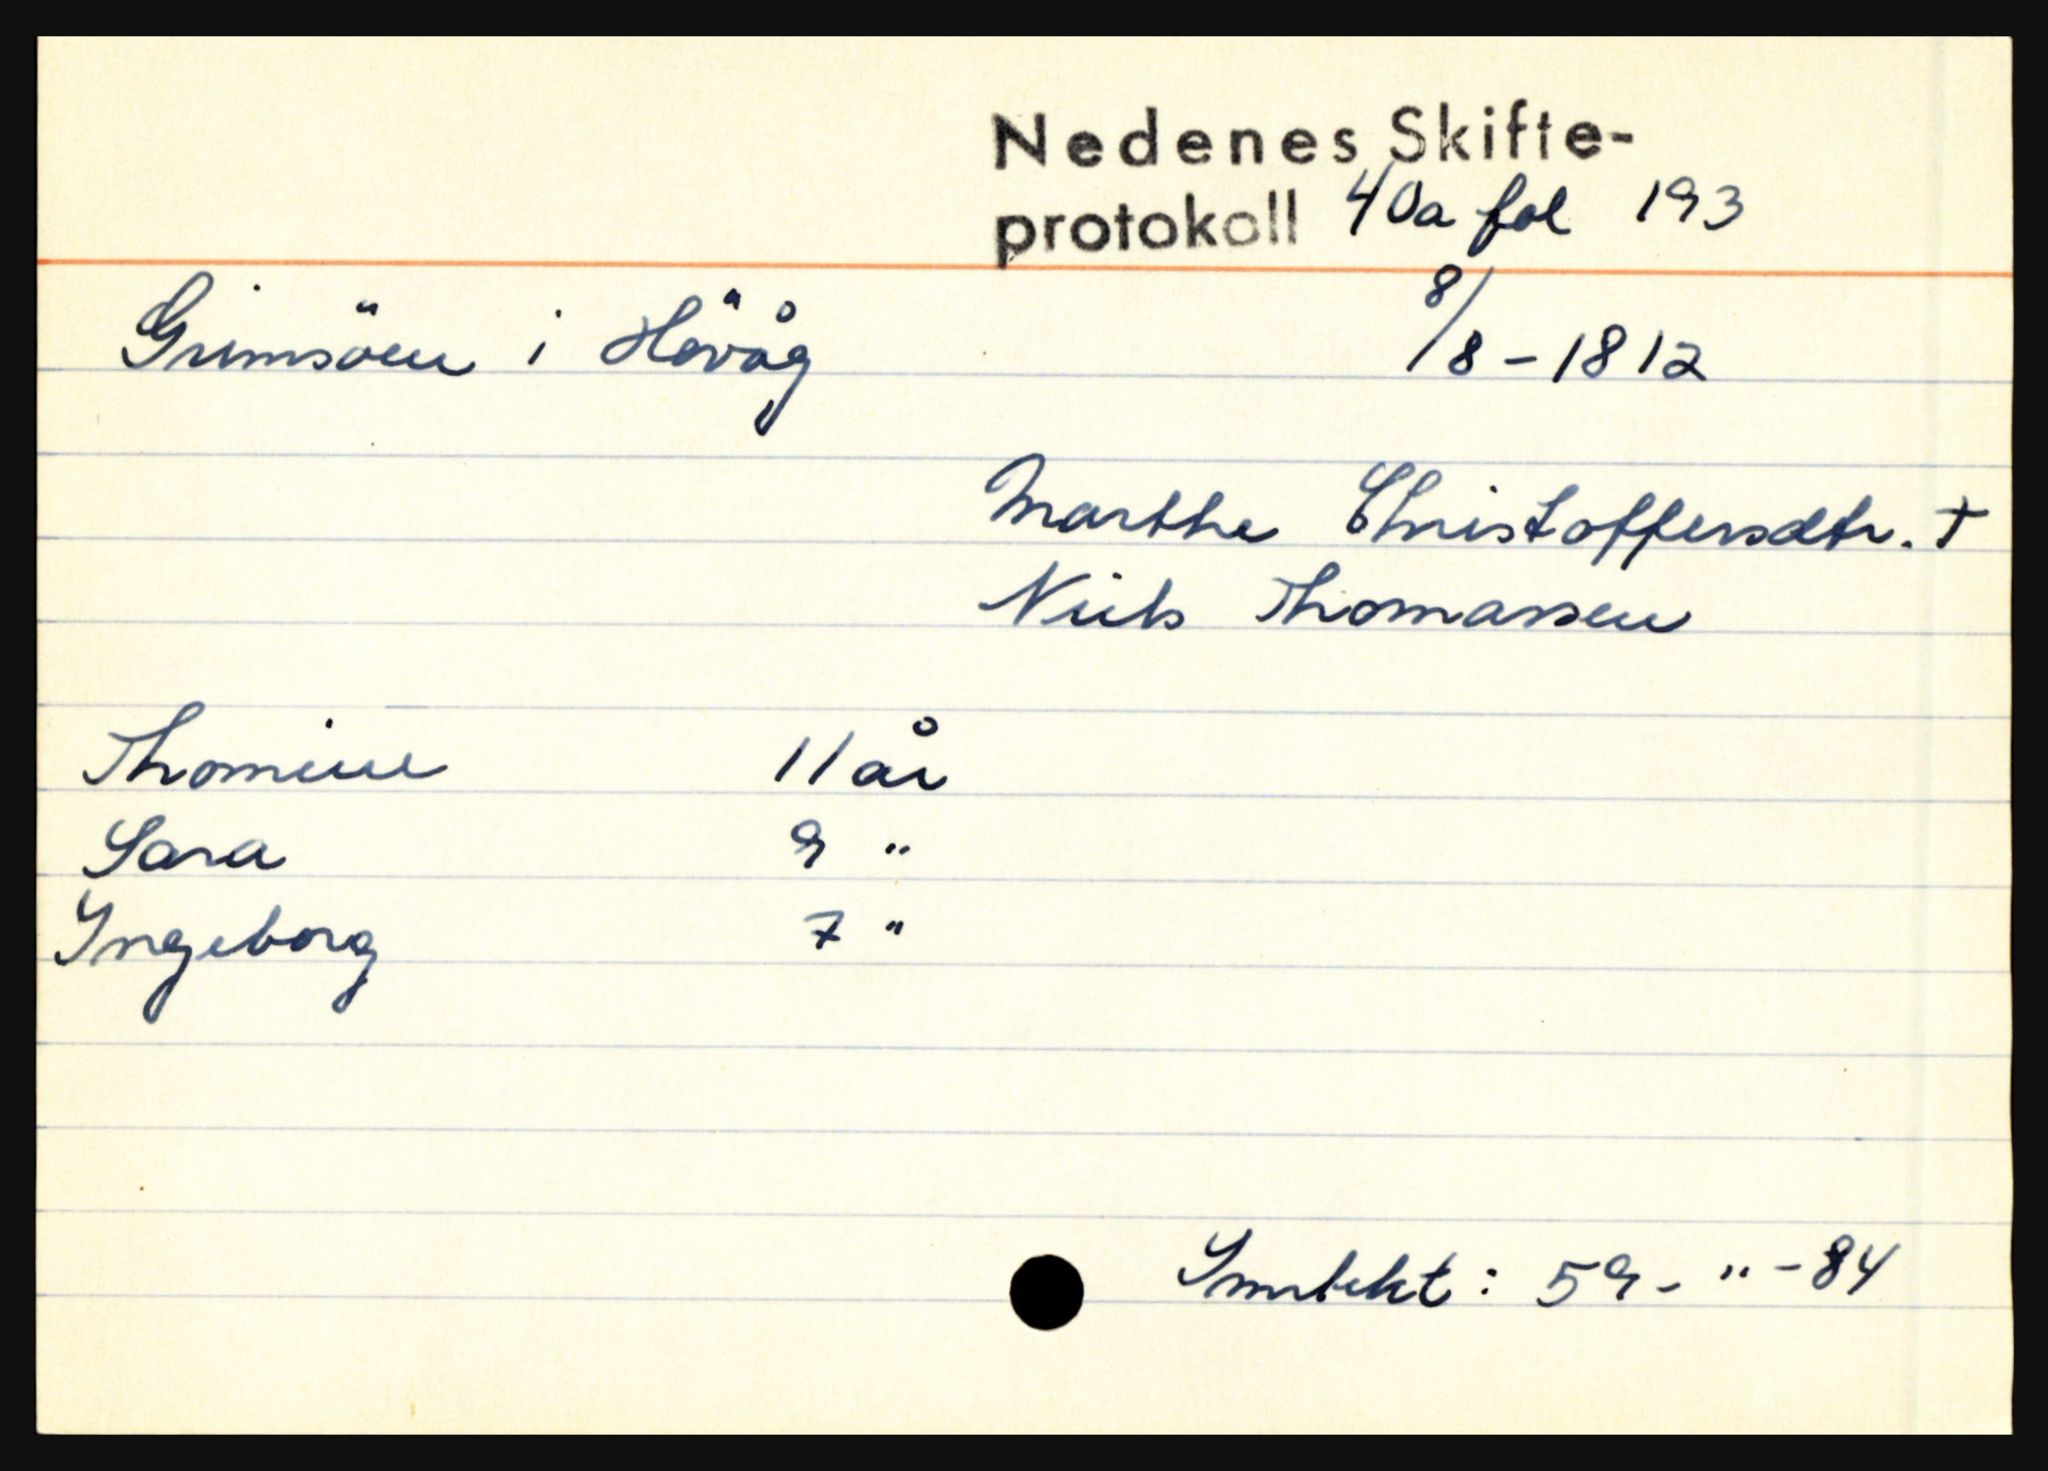 Nedenes Skifte-
protokoll 40a fol 193
Grimsöen i Hövåg 8/8-1812
Marthe Christoffersdtr. †
Niels Thomassen
Thomine 11 år
Sara 9 "
Ingeborg 7 "
Inntekt: 59- " -84